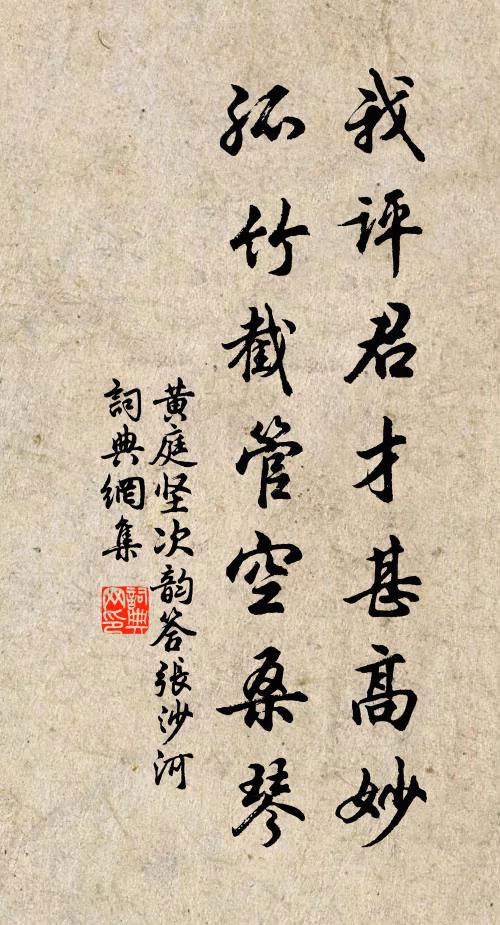 我評君才甚高妙
孤竹截管空桑琴
黄庭坚次韵答張沙河
詞典網集
詞典网印